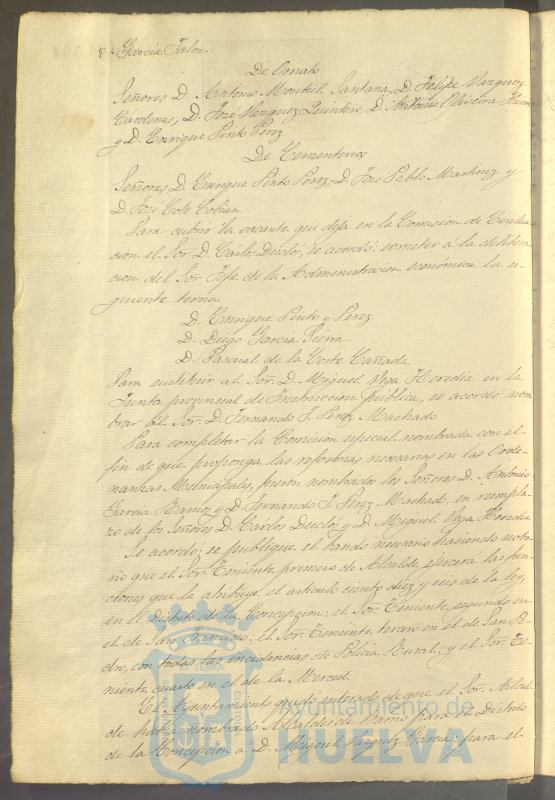 García Jalon
De Ornato
Señores D. Antonio Montiel Santana, D. Felipe Vazquez
Cárdenas, D. José Marquez Quintero, D. Antonio Oliveira
y D. Enrique Pinto Perez
De Cementerios
Señores D. Enrique Pinto Perez, D. José Pablo Martinez y
D. José Coto Cobian
Para cubrir la vacante que deja en la Comision de Evalua-
cion el Sor. D. Carlos Duclós, se acordó: someter á la delibera-
cion del Sor. Jefe de la Administracion económica la si-
guiente terna.
D. Enrique Pinto y Perez
D. Diego Garcia Sierra
D. Pascual de la Corte Cañada
Para sustituir al Sor. D. Miguel Vega Heredia en la
Junta provincial de Instruccion pública, se acordó: nom-
brar al Sor. D. Fernando J. Perez Machado
Para completar la Comision especial nombrada con el
fin de que proponga las reformas necesarias en las Orde-
nanzas Municipales, fueron nombrados los Señores D. Antonio
Garcia Ramos y D. Fernando J. Perez Machado, en reempla-
zo de los Señores D. Carlos Duclós y D. Miguel Vega Heredia
Se acordó: se publique el bando necesario haciendo noto-
rio que el Sor. Teniente primero de Alcalde, ejercerá las fun-
ciones que le atribuye el artículo ciento diez y seis de la ley,
en el Distrito de la Concepcion; el Sor. Teniente segundo en
el de San Francisco; el Sor. Teniente tercero en el de San Pe-
dro, con todas las incidencias de Policia Rural; y el Sor. Te-
niente cuarto en el de la Merced.
El Ayuntamiento quedó enterado de que el Sor. Alcal-
de habia nombrado Alcaldes de barrio para el Distrito
de la Concepcion a D. Miguel Vazquez Garcia: para el
Ayuntamiento de
HUELVA